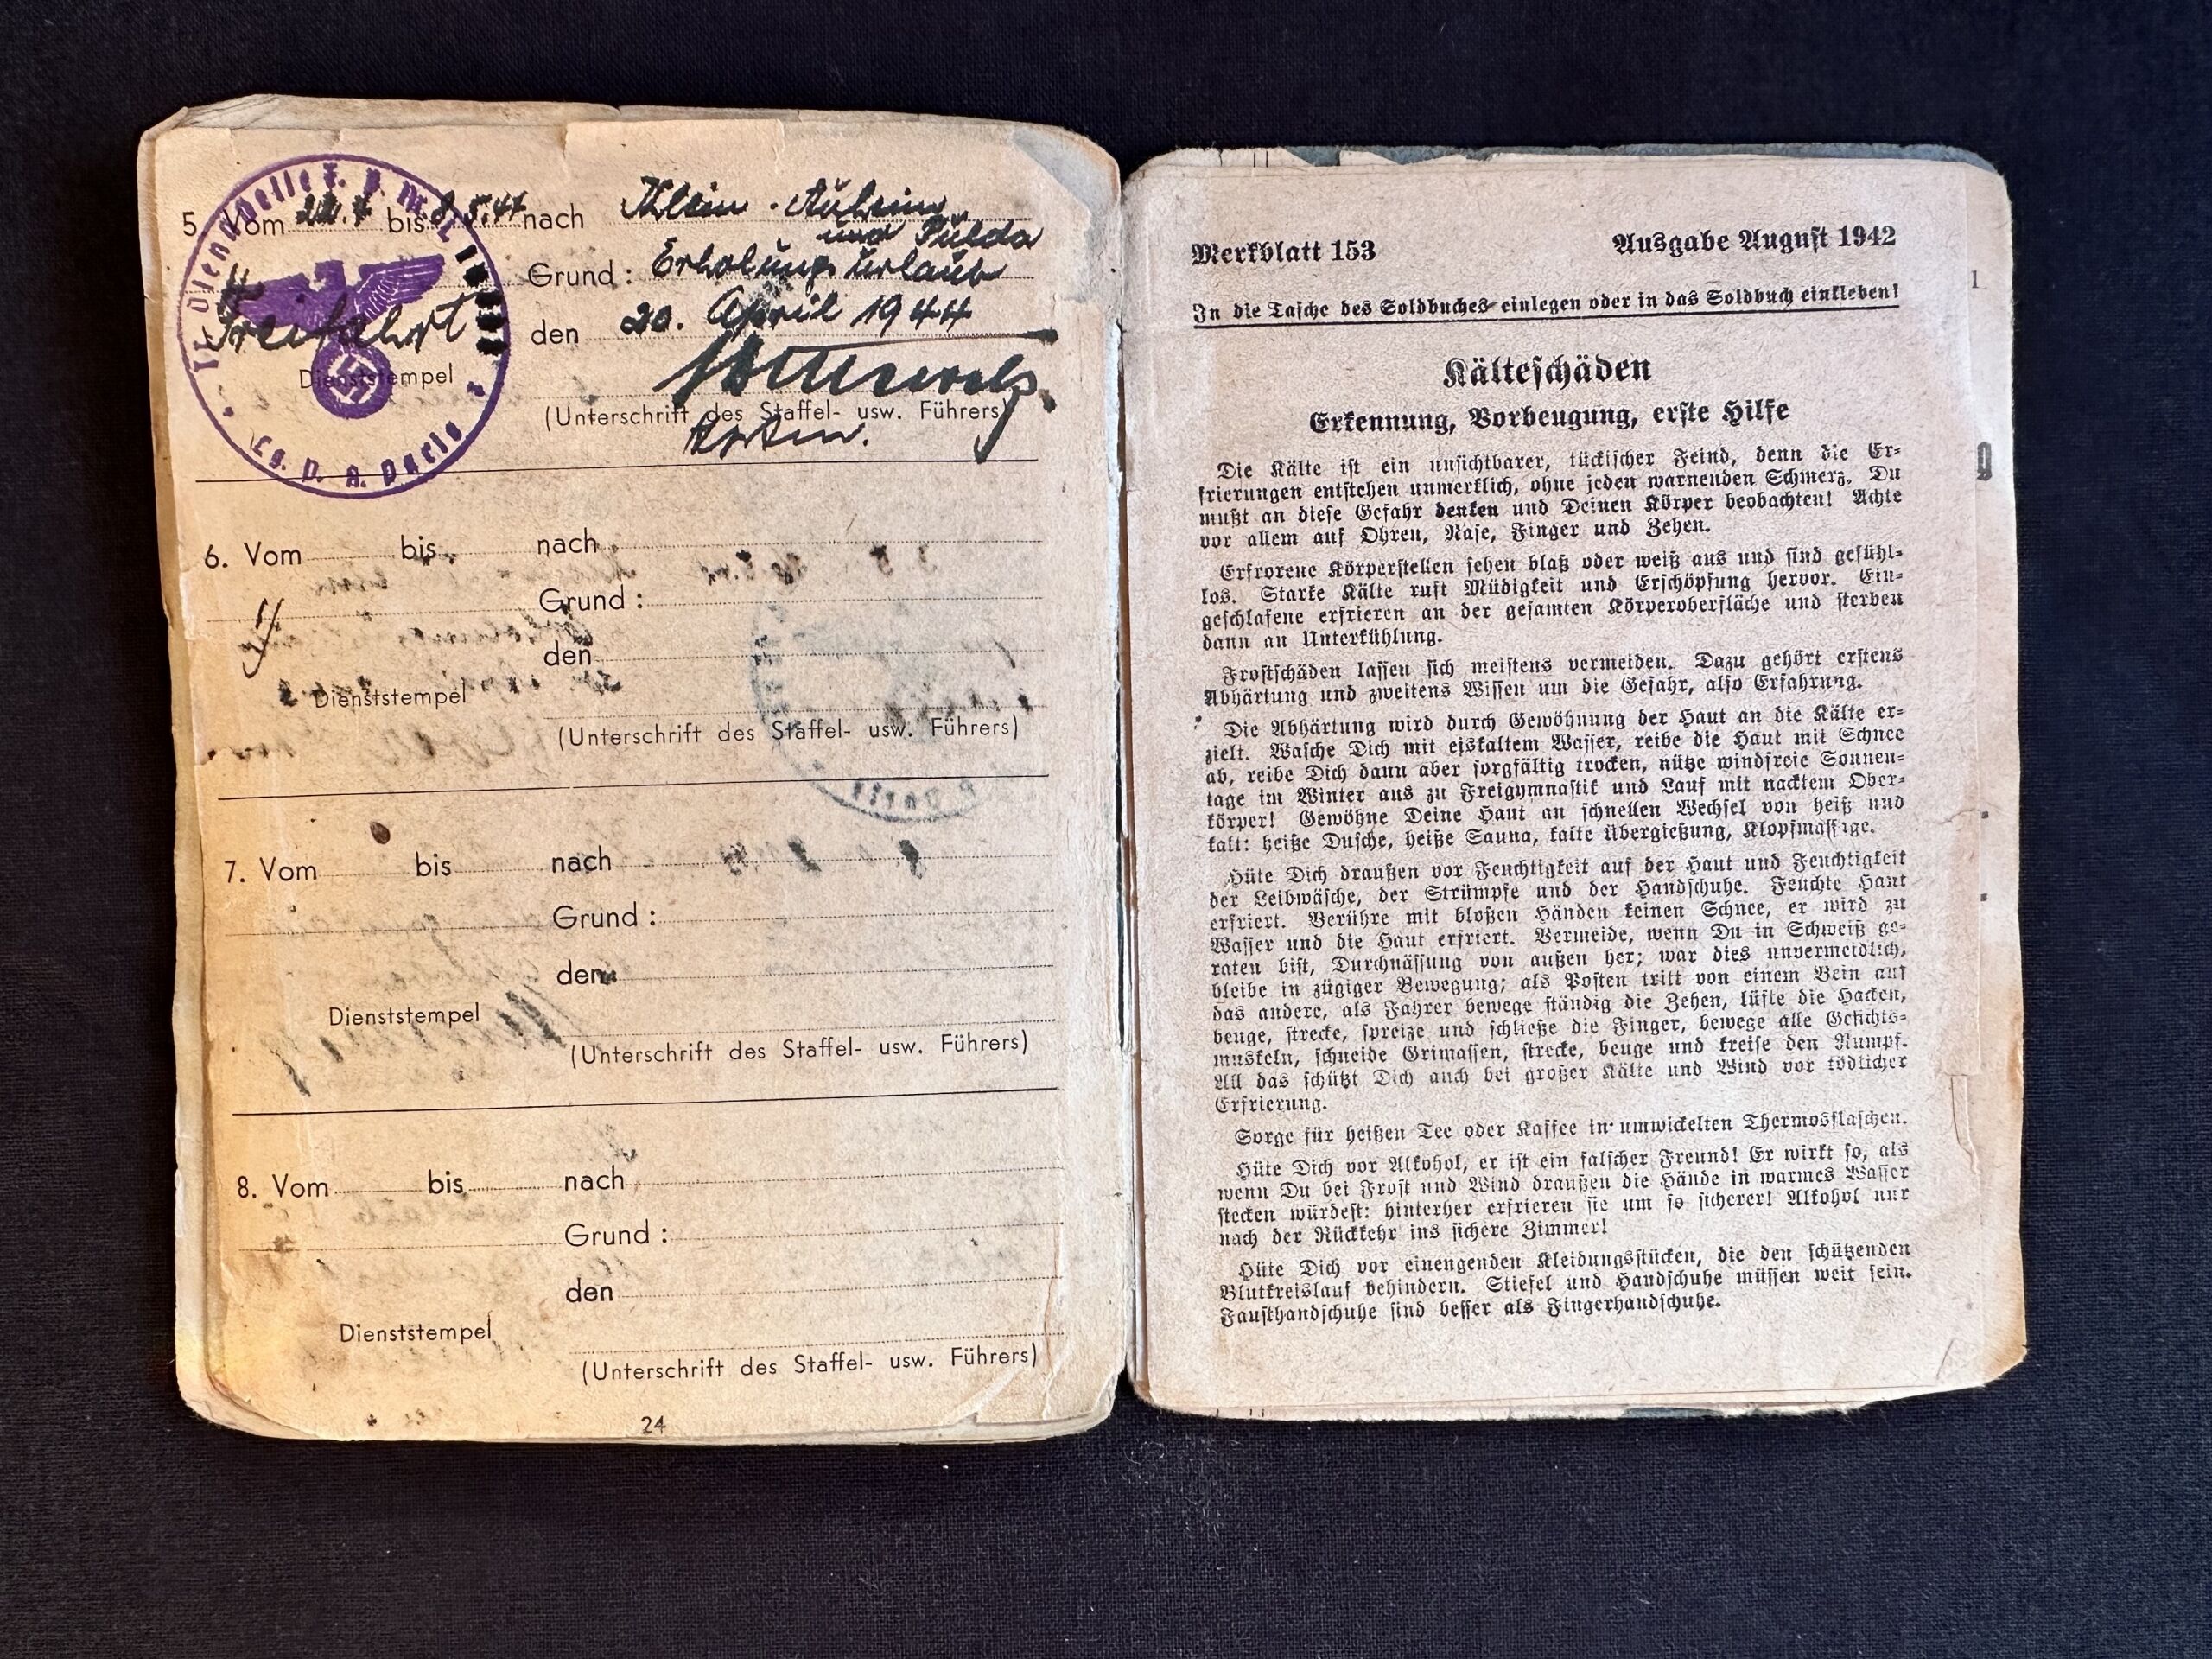 5. Vom 22.4 bis 8.5.44 nach Klein-Auheim
und Fulda
Grund: Erholungsurlaub
Freifahrt
den 20. April 1944
Dienststempel
(Unterschrift des Staffel- usw. Führers)
Lg. P. A. Paris
6. Vom bis nach
Grund:
den
Dienststempel
(Unterschrift des Staffel- usw. Führers)
7. Vom bis nach
Grund:
den
Dienststempel
(Unterschrift des Staffel- usw. Führers)
8. Vom bis nach
Grund:
den
Dienststempel
(Unterschrift des Staffel- usw. Führers)
24
Merkblatt 153 Ausgabe August 1942
In die Tasche des Soldbuches einlegen oder in das Soldbuch einkleben!
Kälteschäden
Erkennung, Vorbeugung, erste Hilfe
Die Kälte ist ein unsichtbarer, tückischer Feind, denn die Er-
frierungen entstehen unmerklich, ohne jeden warnenden Schmerz. Du
mußt an diese Gefahr denken und Deinen Körper beobachten! Achte
vor allem auf Ohren, Nase, Finger und Zehen.
Erfrorene Körperstellen sehen blaß oder weiß aus und sind gefühl-
los. Starke Kälte ruft Müdigkeit und Erschöpfung hervor. Ein-
geschlafene erfrieren an der gesamten Körperoberfläche und sterben
dann an Unterkühlung.
Frostschäden lassen sich meistens vermeiden. Dazu gehört erstens
Abhärtung und zweitens Wissen um die Gefahr, also Erfahrung.
Die Abhärtung wird durch Gewöhnung der Haut an die Kälte er-
zielt. Wasche Dich mit eiskaltem Wasser, reibe die Haut mit Schnee
ab, reibe Dich dann aber sorgfältig trocken, nütze windfreie Sonnen-
tage im Winter aus zu Freigymnastik und Lauf mit nacktem Ober-
körper! Gewöhne Deine Haut an schnellen Wechsel von heiß und
kalt: heiße Dusche, heiße Sauna, kalte Übergießung, Klopfmassage.
Hüte Dich draußen vor Feuchtigkeit auf der Haut und Feuchtigkeit
der Leibwäsche, der Strümpfe und der Handschuhe. Feuchte Haut
erfriert. Berühre mit bloßen Händen keinen Schnee, er wird zu
Wasser und die Haut erfriert. Vermeide, wenn Du in Schweiß ge-
raten bist, Durchnässung von außen her; war dies unvermeidlich,
bleibe in zügiger Bewegung; als Posten tritt von einem Bein auf
das andere, als Fahrer bewege ständig die Zehen, lüfte die Hacken,
beuge, strecke, spreize und schließe die Finger, bewege alle Gesichts-
muskeln, schneide Grimassen, strecke, beuge und kreise den Rumpf.
All das schützt Dich auch bei großer Kälte und Wind vor tödlicher
Erfrierung.
Sorge für heißen Tee oder Kaffee in umwickelten Thermosflaschen.
Hüte Dich vor Alkohol, er ist ein falscher Freund! Er wirkt so, als
wenn Du bei Frost und Wind draußen die Hände in warmes Wasser
stecken würdest: hinterher erfrieren sie um so sicherer! Alkohol nur
nach der Rückkehr ins sichere Zimmer!
Hüte Dich vor einengenden Kleidungsstücken, die den schützenden
Blutkreislauf behindern. Stiefel und Handschuhe müssen weit sein.
Fausthandschuhe sind besser als Fingerhandschuhe.